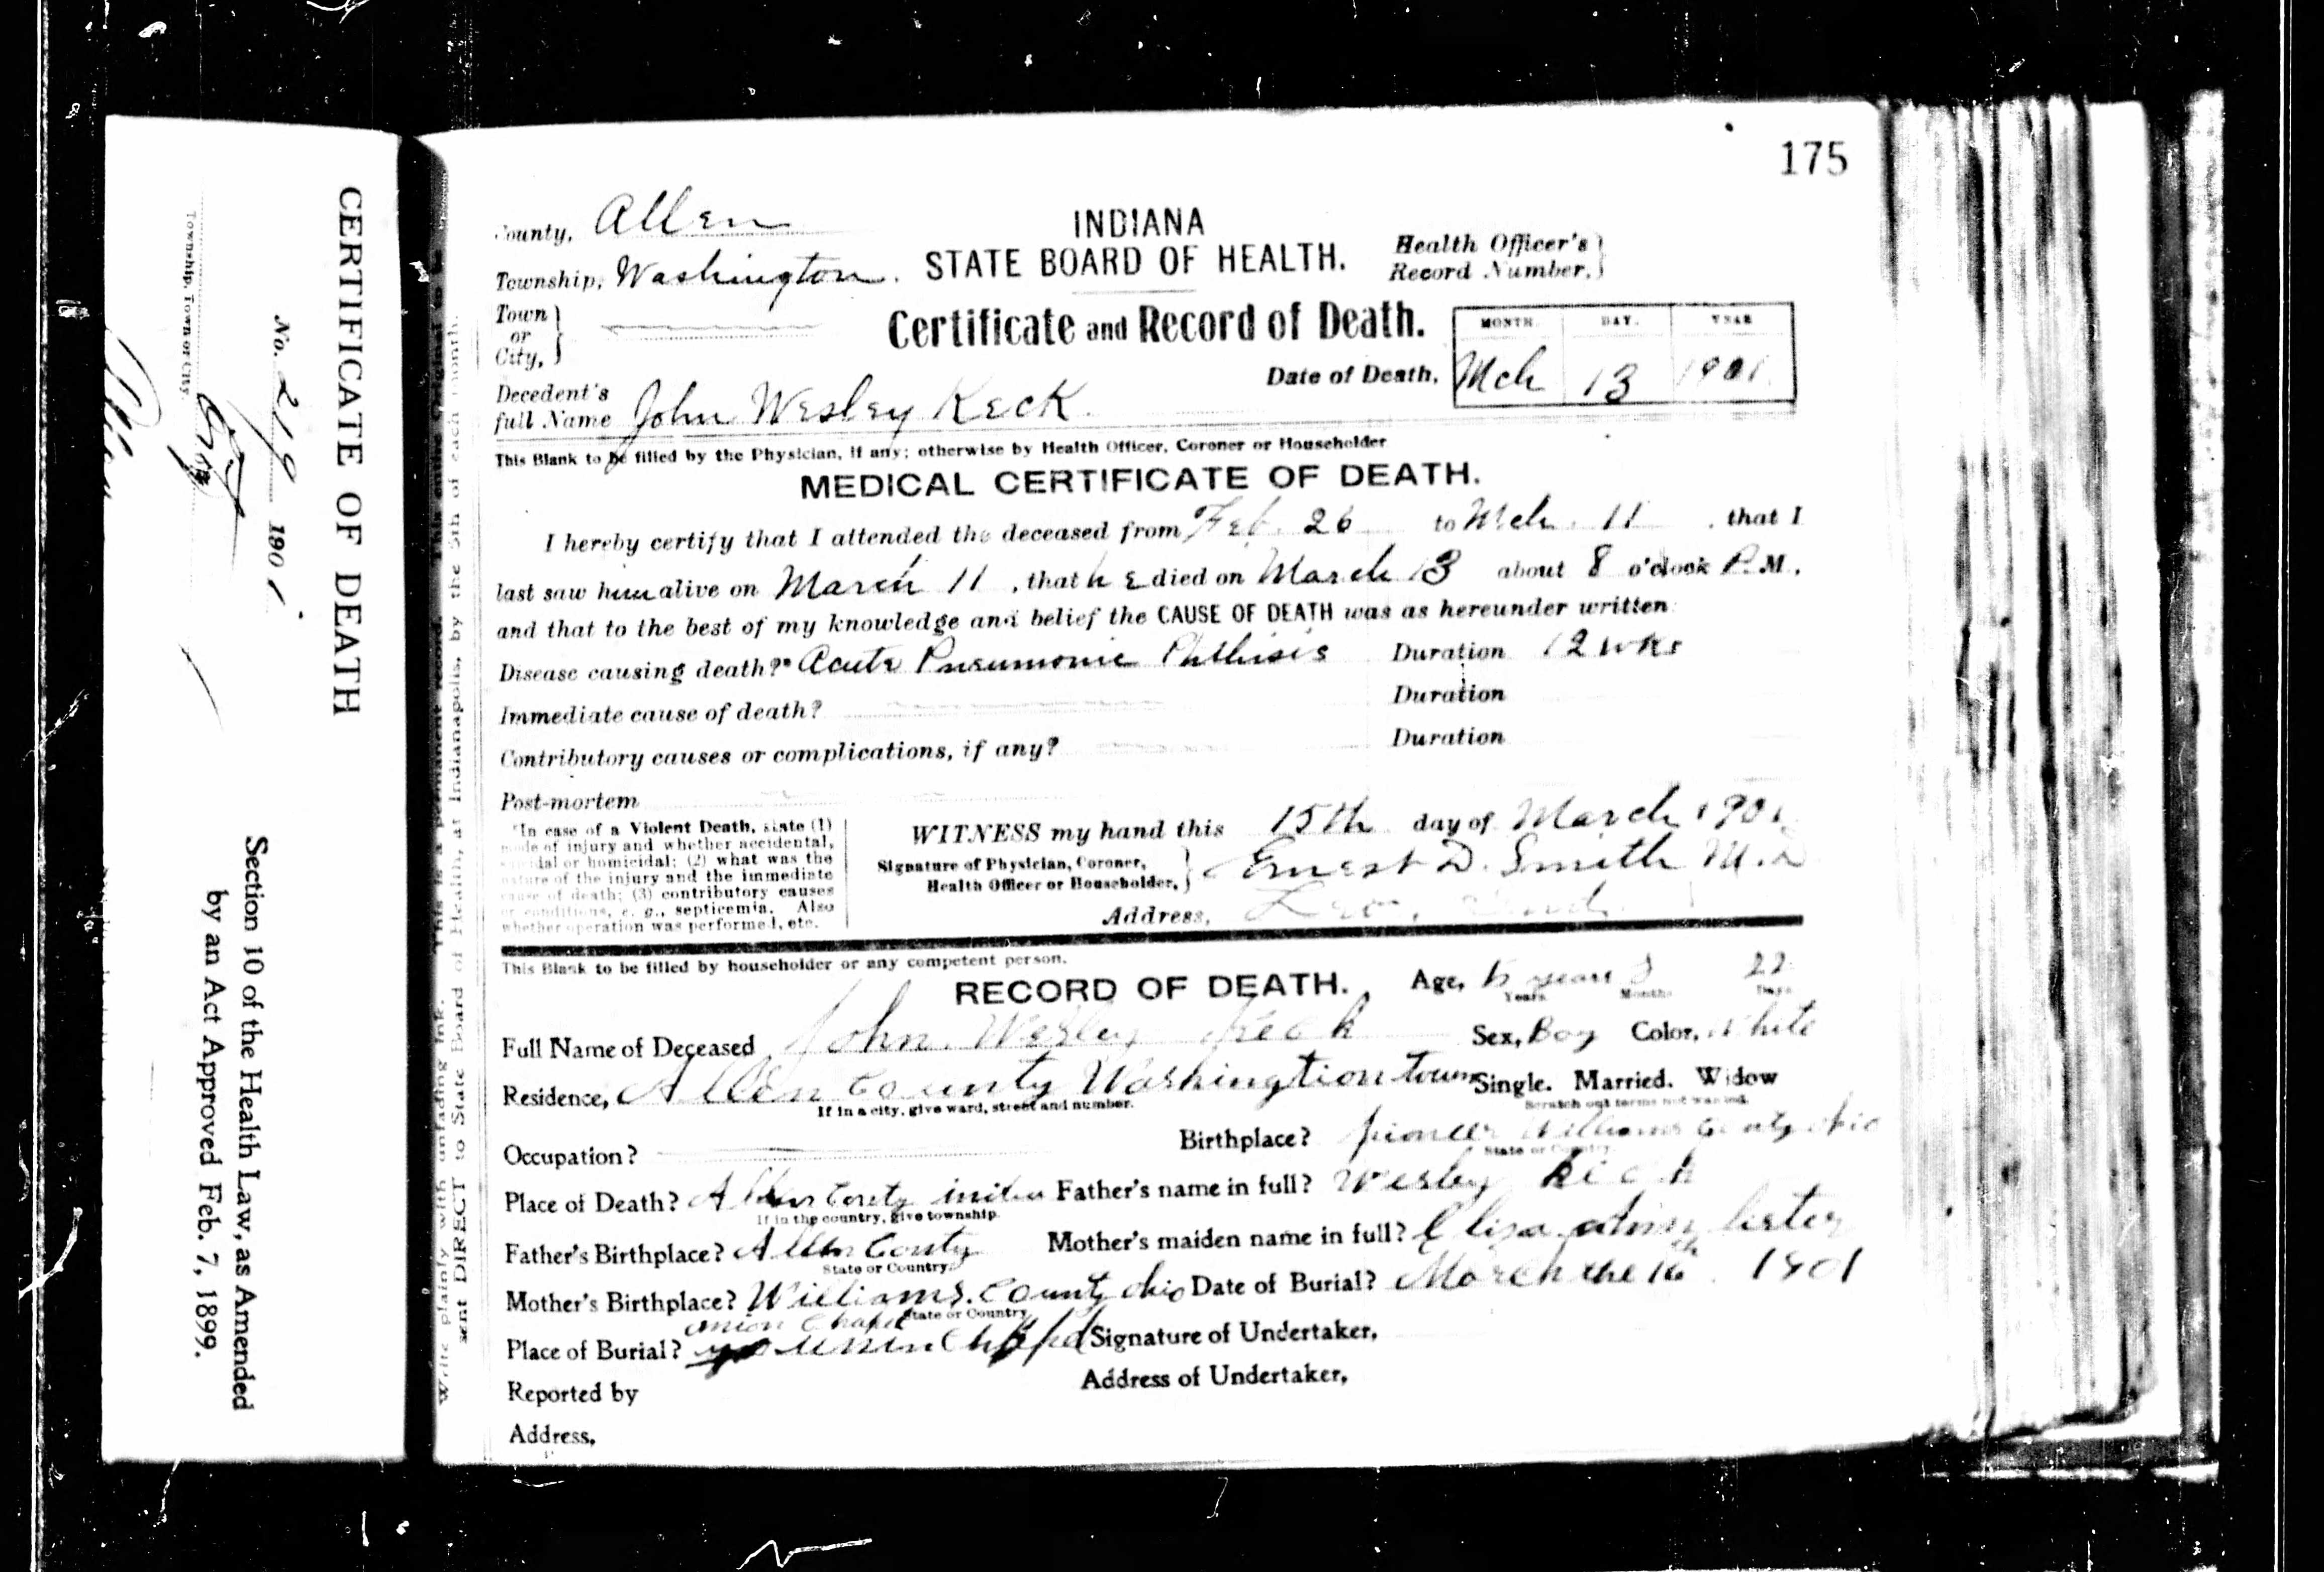 175
County, Allen
INDIANA
Township, Washington.
STATE BOARD OF HEALTH.
Health Officer's
Record Number,
Town
or
City,
Certificate and Record of Death.
MONTH. DAY. YEAR
Date of Death, Mch 13 1901.
Decedent's
full Name John Wesley Keck.
This Blank to be filled by the Physician, if any; otherwise by Health Officer, Coroner or Householder
MEDICAL CERTIFICATE OF DEATH.
I hereby certify that I attended the deceased from Feb. 26 to Mch. 11 , that I
last saw him alive on March 11 , that he died on March 13 about 8 o'clock P. M.,
and that to the best of my knowledge and belief the CAUSE OF DEATH was as hereunder written:
Disease causing death?* Acute Pneumonic Phthisis Duration 12 wks
Immediate cause of death? Duration
Contributory causes or complications, if any? Duration
Post-mortem
*In case of a Violent Death, state (1)
mode of injury and whether accidental,
suicidal or homicidal; (2) what was the
nature of the injury and the immediate
cause of death; (3) contributory causes
or conditions, e. g., septicemia. Also
whether operation was performed, etc.
WITNESS my hand this 15th day of March 1901
Signature of Physician, Coroner,
Health Officer or Householder, Ernest D. Smith M.D
Address, Leo, Ind.
This Blank to be filled by householder or any competent person.
RECORD OF DEATH. Age, years 22
Years Months Days
Full Name of Deceased John Wesley Keck Sex, Boy Color, White
Residence, Allen County Washingtion town Single. Married. Widow
If in a city, give ward, street and number. Scratch out terms not wanted.
Occupation? Birthplace? pioneer Williams County ohio
State or Country.
Place of Death? Allen Conty Father's name in full? Wesley Keck
If in the country, give township.
Father's Birthplace? Allen Conty Mother's maiden name in full? Eliza
State or Country.
Mother's Birthplace? Williams. County ohio Date of Burial? March the 16 1901
State or Country.
union Chapel
Place of Burial? Signature of Undertaker,
Reported by Address of Undertaker,
Address,
CERTIFICATE OF DEATH
No. 219 1901.
Township, Town or City
Allen
Section 10 of the Health Law, as Amended
by an Act Approved Feb. 7, 1899.
Write plainly with unfading ink. This is a permanent record.
sent DIRECT to State Board of Health, at Indianapolis, by the 5th of each month.